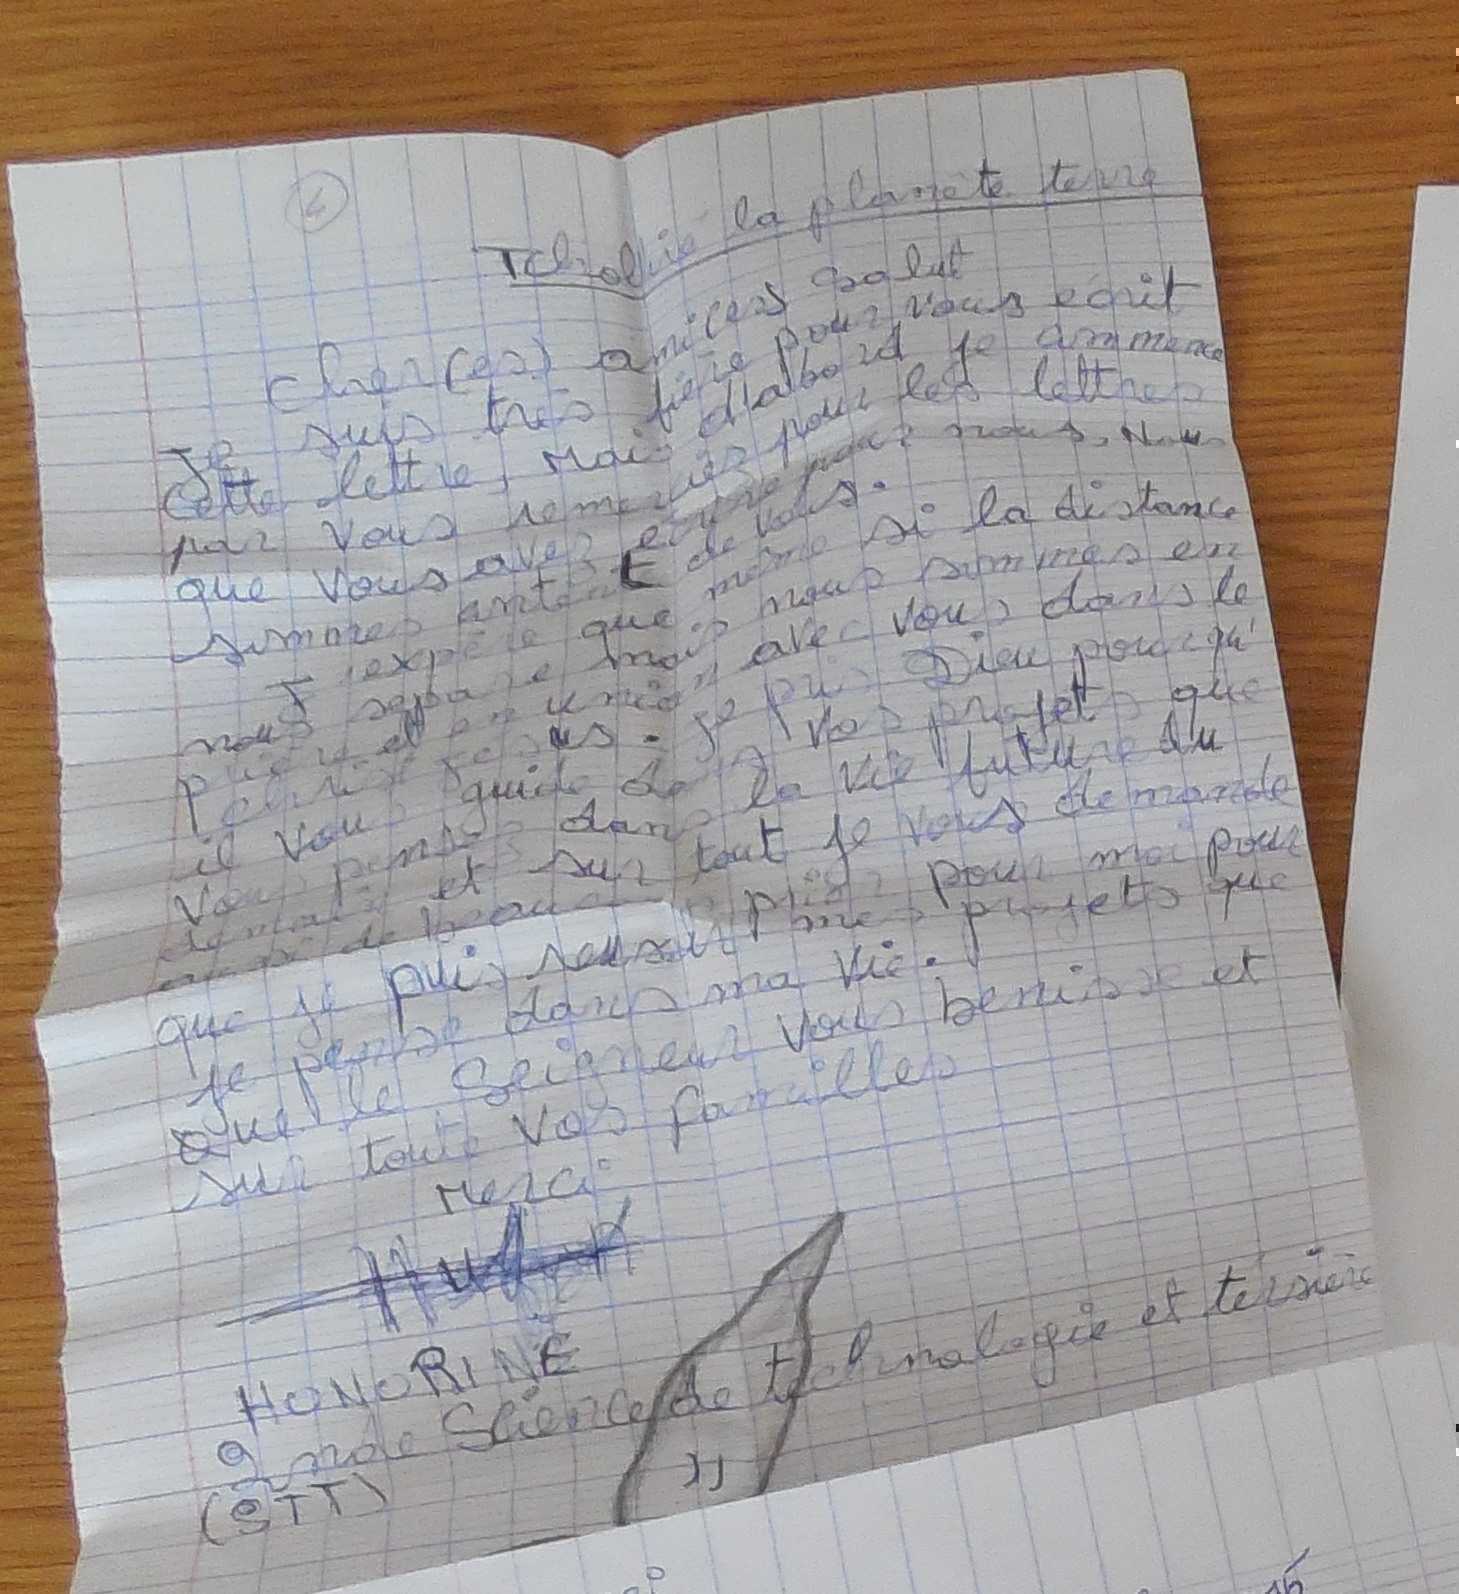 4
Tcholliré la planète terre
Cher(es) ami(es) salut
Je suis très fière pour vous ecrit
Cette lettre, mais d'abord je commence
par vous remercies pour les lettres
que vous avez ecrire pour nous. Nous
sommes content de vous.
J'expère que même si la distance
nous separe mais nous sommes en
prière et en union avec vous dans le
christ Jesus. je pris Dieu pour qu'
il vous guide dans vos projets que
vous pensés dans la vie future du
demain et sur tout je vous demande
aussi de beaucoup prier pour moi pour
que je puis reussir mes projets que
je pense dans ma vie.
Que le Seigneur vous benisse et
sur toute vos familles
Merci
HONORINE
2nde Science de technologie et tersière
(STT)